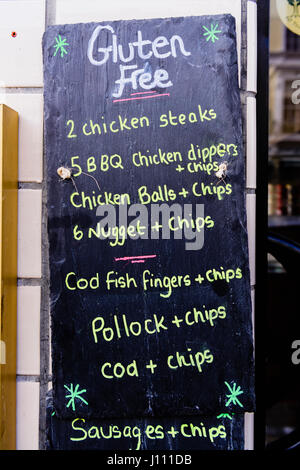 Gluten
Free
2 chicken steaks
5 BBQ Chicken dippers
+ chips
Chicken Balls + chips
6 Nugget + Chips
Cod fish fingers + chips
Pollock + chips
Cod + chips
Sausages + chips
a
alamy stock photo